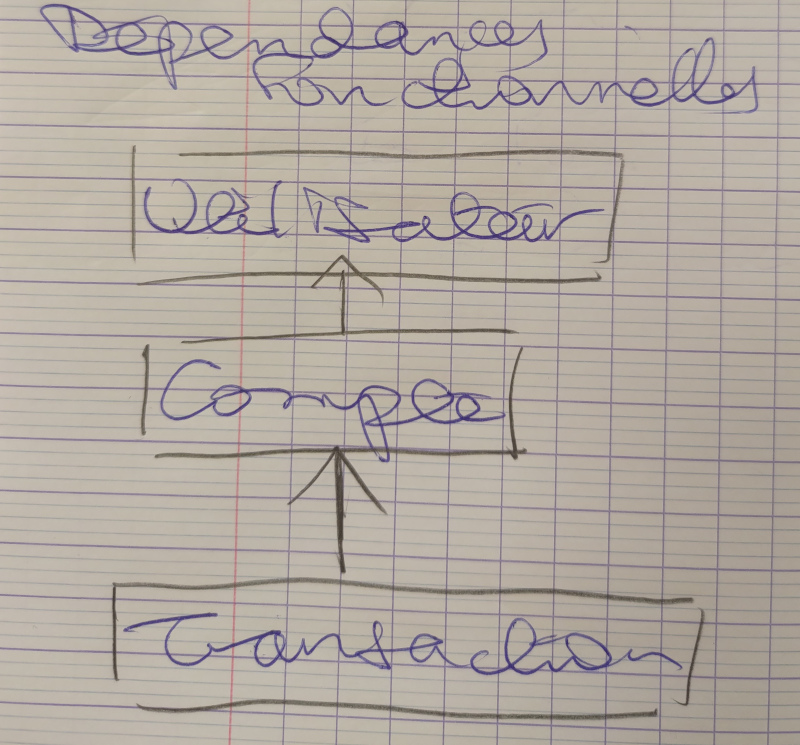 Dependances
fonctionnelles
Utilisateur
Compte
Transaction